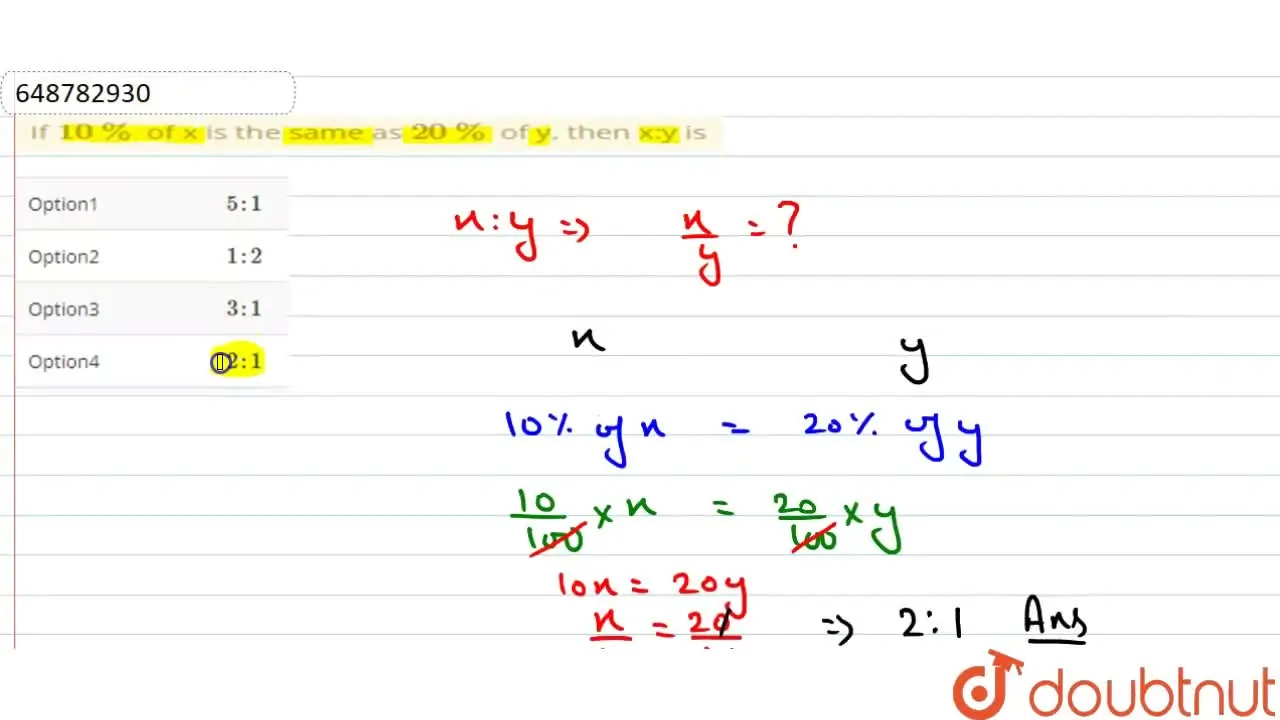 648782930
If 10 % of x is the same as 20 % of y. then x:y is
Option1 5:1
Option2 1:2
Option3 3:1
Option4 2:1
x:y ⇒ x/y = ?
x y
10% of x = 20% of y
10/100 × x = 20/100 × y
10x = 20y
x = 20 ⇒ 2:1 Ans
doubtnut